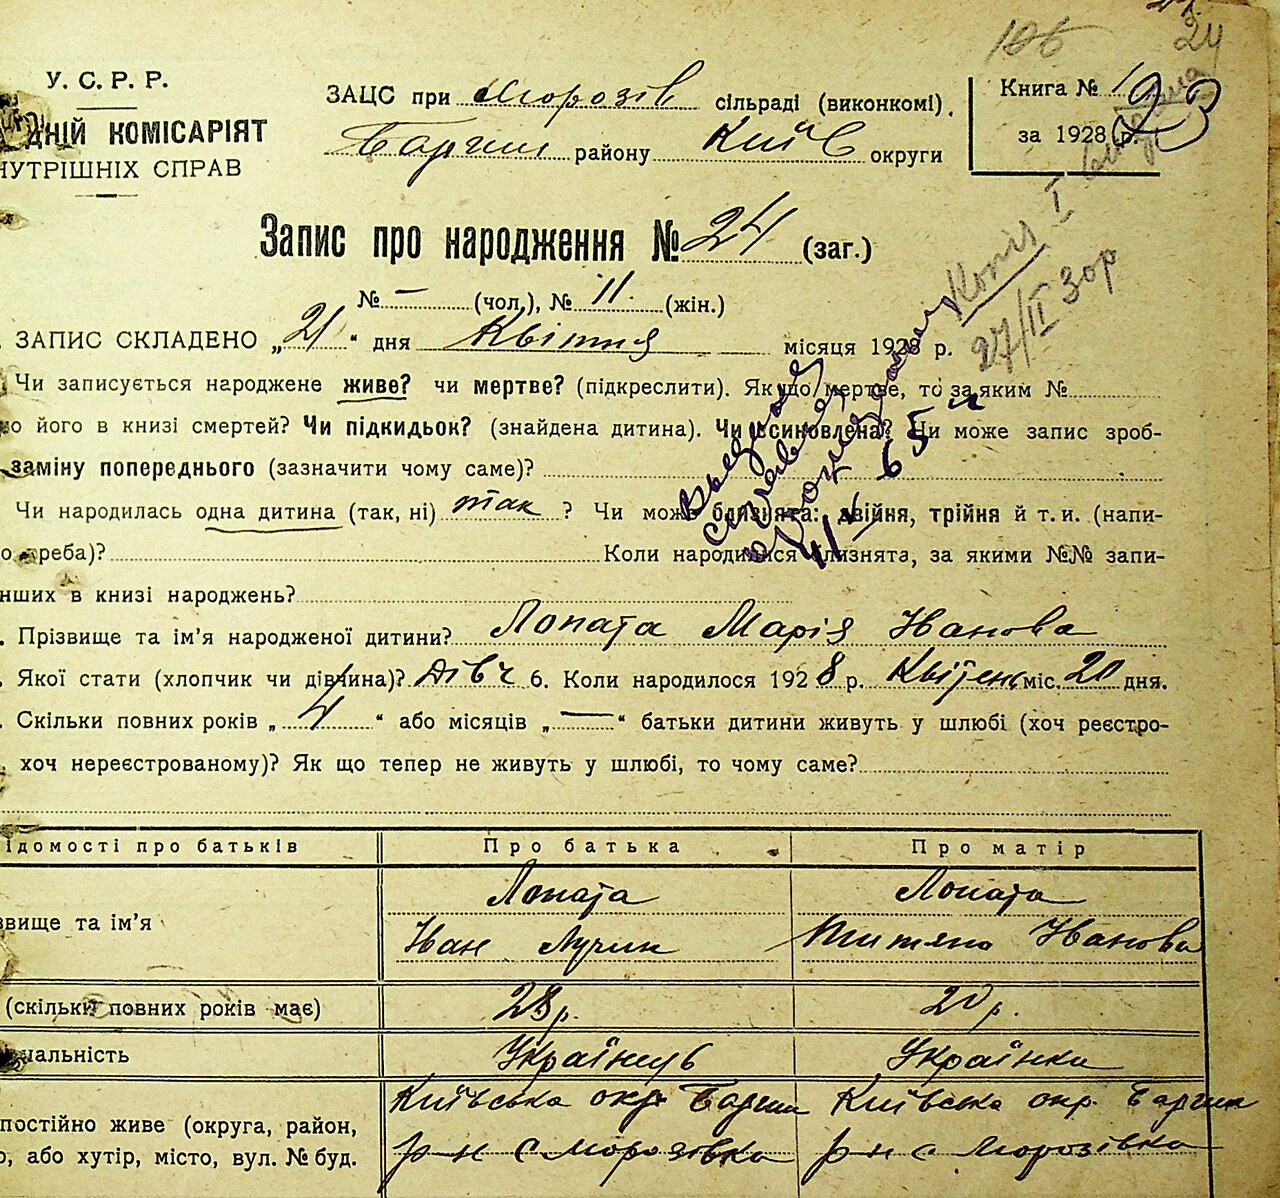 106
24
У. С. Р. Р.
ДНІЙ КОМІСАРІЯТ
НУТРІШНІХ СПРАВ
ЗАЦС при Морозів сільраді (виконкомі).
Баришп району Київ округи
Книга № 1
за 1928 р.
23
Запис про народження № 24 (заг.)
№ — (чол.), № 11. (жін.)
Копія I
27/II Зор
. ЗАПИС СКЛАДЕНО „21“ дня Квітня місяця 1928 р.
Чи записується народжене живе? чи мертве? (підкреслити). Як що мертве, то за яким №
но його в книзі смертей? Чи підкидьок? (знайдена дитина). Чи всиновлена? Чи може запис зроб-
заміну попереднього (зазначити чому саме)?
Чи народилась одна дитина (так, ні) так ? Чи може близнята: двійня, трійня й т. и. (напи-
о треба)? Коли народилися близнята, за якими №№ запи-
нших в книзі народжень?
. Прізвище та ім'я народженої дитини? Лопата Марія Іванова
. Якої стати (хлопчик чи дівчина)? Дівч 6. Коли народилося 1928 р. Квітень міс. 20 дня.
. Скільки повних років „4“ або місяців „—“ батьки дитини живуть у шлюбі (хоч реєстро-
, хоч нереєстрованому)? Як що тепер не живуть у шлюбі, то чому саме?
ідомості про батьків Про батька Про матір
звище та ім'я
Лопата Лопата
Іван Лучин Титяна Іванова
(скільки повних років має) 28 р. 20 р.
нальність Українець Українка
постійно живе (округа, район,
о, або хутір, місто, вул. № буд.
Київська окр. Бариш Київська окр. Баришп
р-н с Морозівка р-н с Морозівка